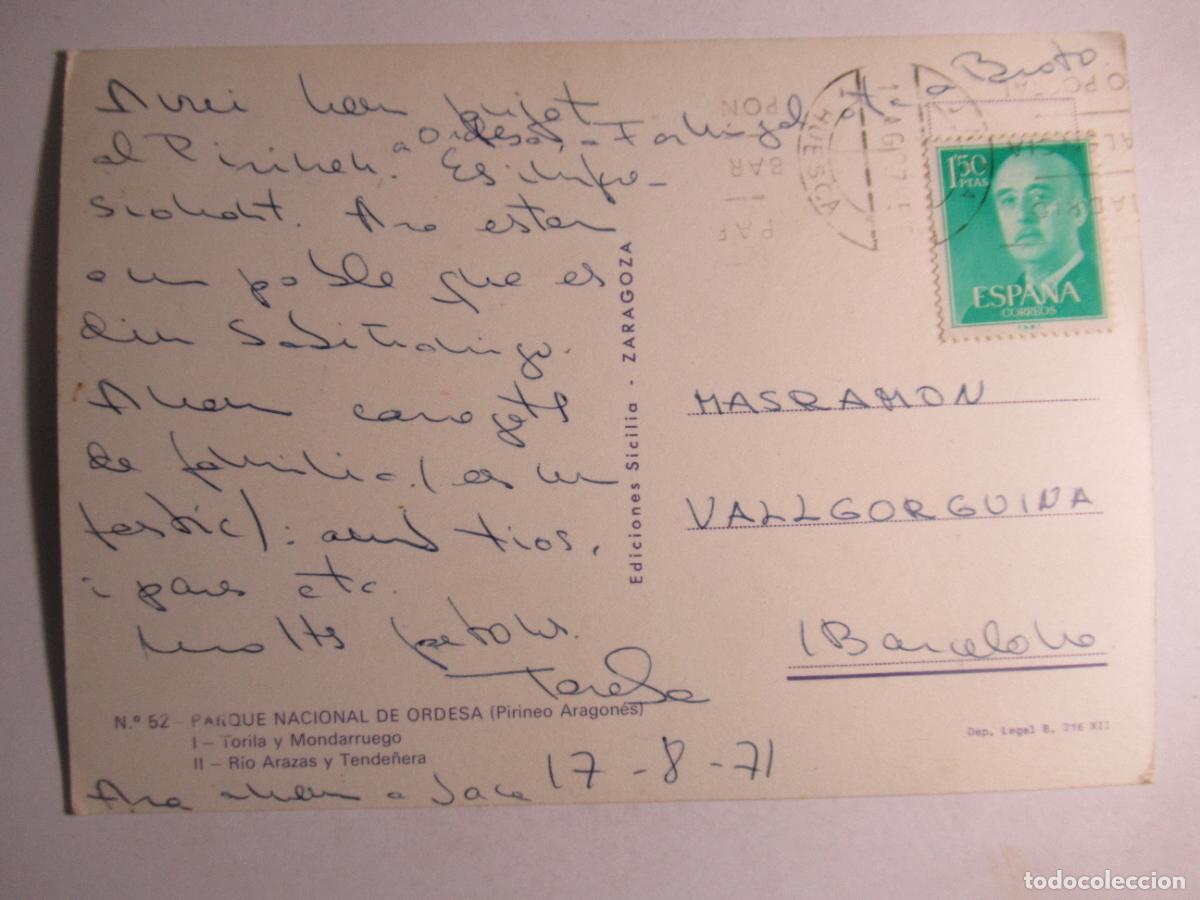 Avui hem pujat
a Ordesa, a
Broto
al Pirineu. Es impre-
sionant. Ara estem
a un poble que es
diu Sabiñanigo.
Anem carregats
de familia (es un
fastic): amb tios,
i pares etc.
Molts petons.
Teresa
17-8-71
Ara anem a Jaca
N.º 52 - PARQUE NACIONAL DE ORDESA (Pirineo Aragonés)
I - Torila y Mondarruego
II - Río Arazas y Tendeñera
Ediciones Sicilia - ZARAGOZA
HUESCA
1'50
PTAS
ESPAÑA
CORREOS
MASRAMON
VALLGORGUINA
(Barcelona)
Dep. Legal B. 716 XII
todocoleccion